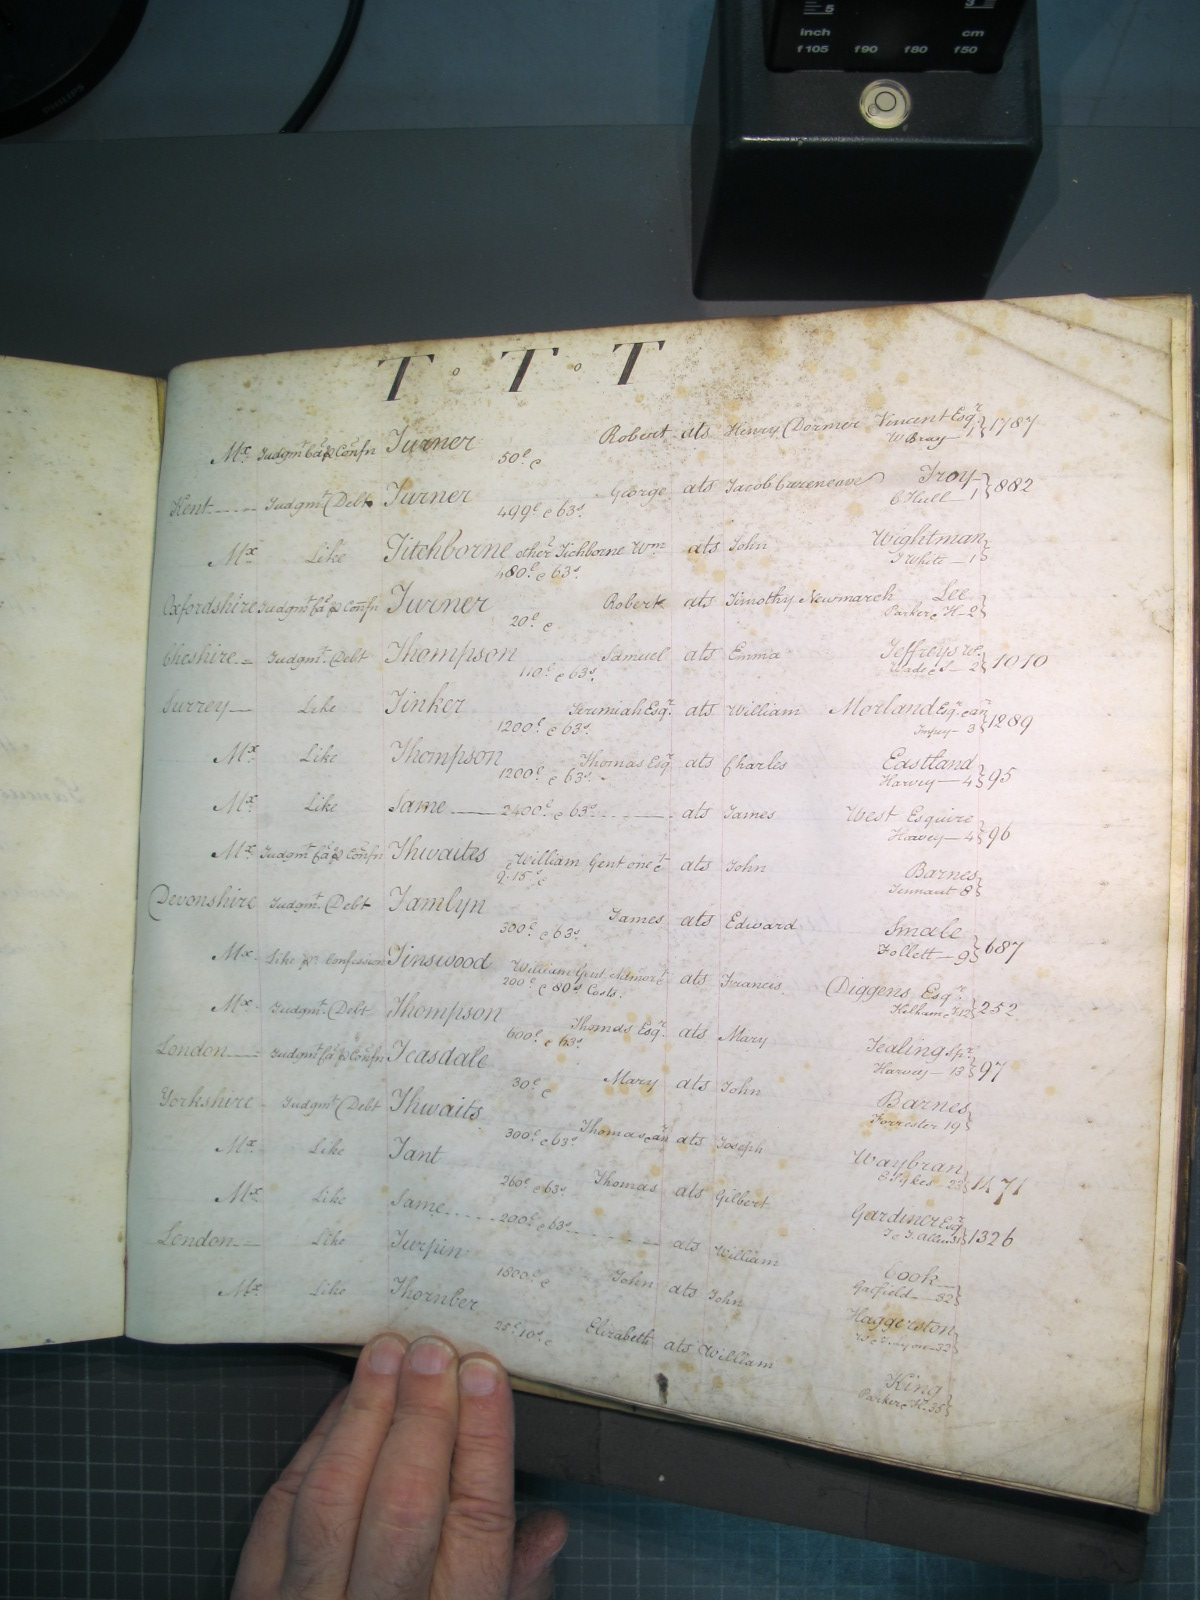 5 3
inch cm
f105 f90 f80 f50
PHILIPS
T. T. T
Mx Judgmt Cap Confn Turner 50£ c Robert ats Henry Dormer Vincent Esqr 1787
W Bray — 1
Kent Judgmt Debt Turner 499£ c 63s. George ats Jacob Troy 882
C Hull — 1
Mx Like Titchborne otherw Tichborne Wm ats John Wightman
480£ c 63s. T White — 1
Oxfordshire Judgmt Cap Confn Turner 20£ c Robert ats Timothy Newmarch Lee
Parker c H — 2
Cheshire Judgmt. Debt Thompson 110£ c 63s. Samuel ats Emma Jeffreys Wr. 1010
Wade c S — 2
Surrey Like Tinker 1200£ c 63s. Jeremiah Esqr. ats William Morland Esqr. c anr 1289
Impey — 3
Mx Like Thompson 1200£ c 63s. Thomas Esqr ats Charles Eastland 95
Harvey — 4
Mx Like Same 2400£ c 63s. ats James West Esquire 96
Harvey — 4
Mx Judgmt Cap Confn Thwaites William Gent one &c ats John Barnes
9.15s c Tennant 8
Devonshire Judgmt. Debt Tamlyn 300£ c 63s. James ats Edward Smale 687
Follett — 9
Mx Like pr. Confession Tinswood William Gent. ats Francis Diggens Esqr. 252
200£ c 80s Costs. 12
Mx Judgmt. Debt Thompson 600£ c 63s. Thomas Esqr. ats Mary Tealing Spr 97
Harvey — 13
London Judgmt Cap Confn Teasdale 30£ c Mary ats John Barnes
Forrester 19
Yorkshire Judgmt Debt Thwaits 300£ c 63s Thomas c anr ats Joseph Waybran 1471
Sykes 23
Mx Like Tant 260£ c 63s Thomas ats Gilbert Gardiner Esqr 1326
T c T. Allen 31
Mx Like Same 200£ c 63s ats William Cook
Gatfield — 32
London Like Turpin 1800£ c John ats John Haggerston
32
Mx Like Thornber 25£ 10s. c Elizabeth ats William King
Parker c H. 35